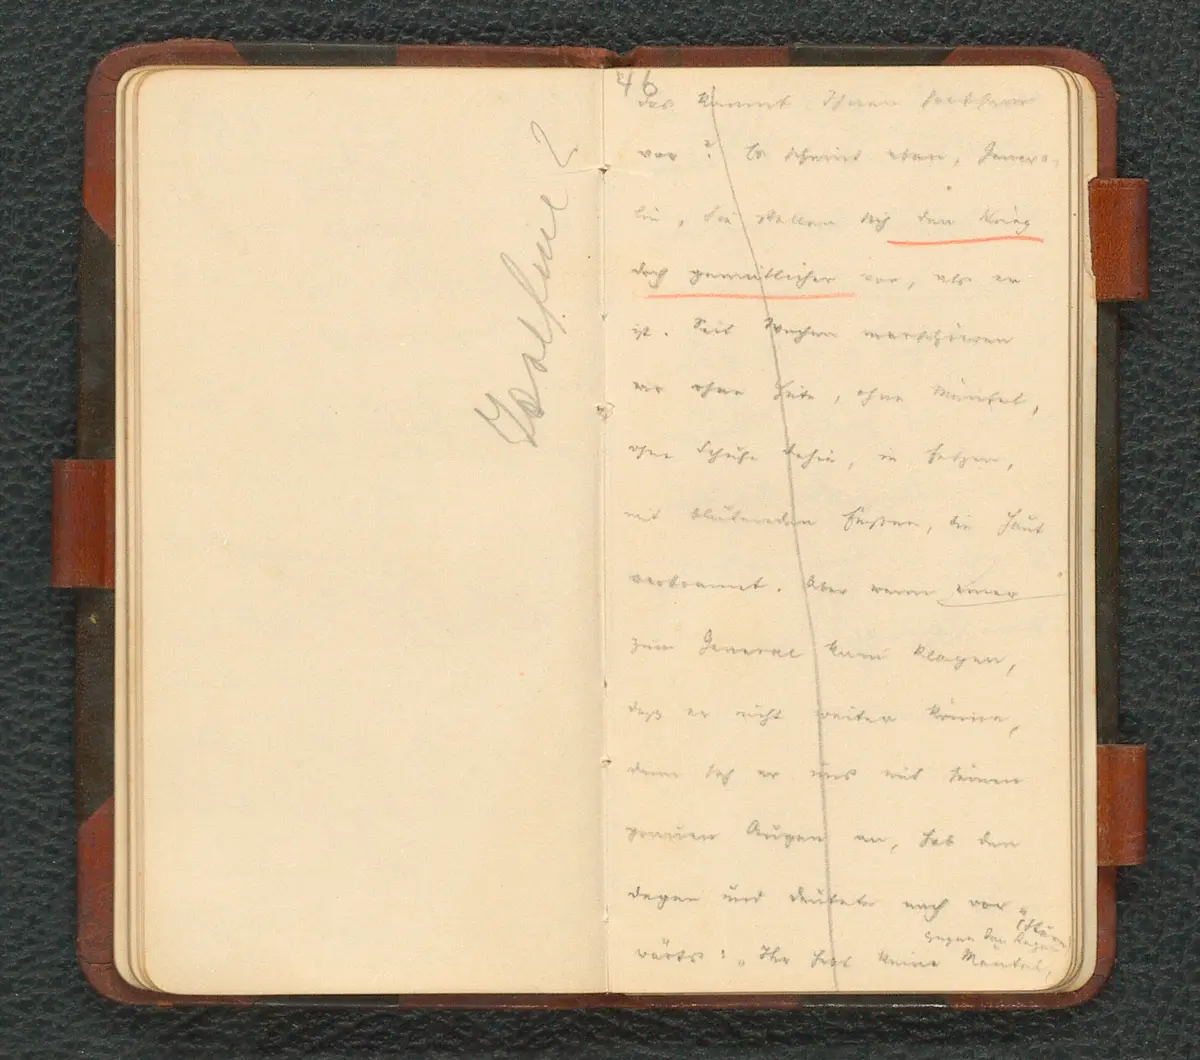 46
das kommt Ihnen seltsam
vor? Es scheint eben, Genera-
lin, Sie stellen sich den Krieg
doch gemütlicher vor, als er
ist. Seit Wochen marschieren
wir ohne Hüte, ohne Mäntel,
ohne Schuhe dahin, in Fetzen,
mit blutenden Füssen, die Haut
verbrannt. Aber wenn einer
zum General kam klagen,
dass er nicht weiter könne,
dann sah er uns mit seinen
grauen Augen an, hob den
Degen und deutete nach vor
gegen den Regen
wärts: „Ihr habt keine Mäntel,